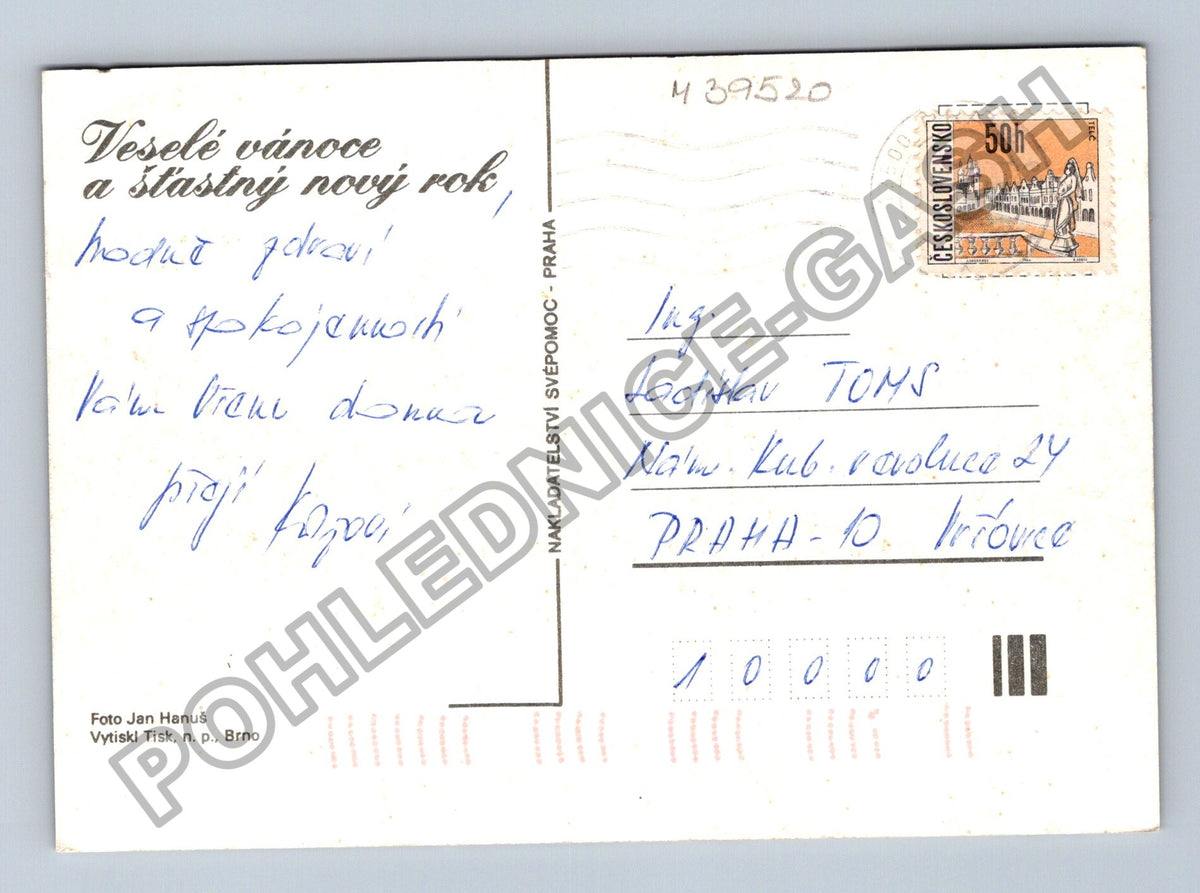 M 39520
Veselé vánoce
a šťastný nový rok,
hodně zdraví
a spokojenosti
Vám Všem doma
přejí
NAKLADATELSTVÍ SVÉPOMOC - PRAHA
Foto Jan Hanuš
Vytiskl Tisk, n. p., Brno
ČESKOSLOVENSKO
50h
TELČ
Ing.
Ladislav TOMS
Nám. Kub. revoluce 24
PRAHA-10 Vršovice
1 0 0 0 0
POHLEDNICE-GASH